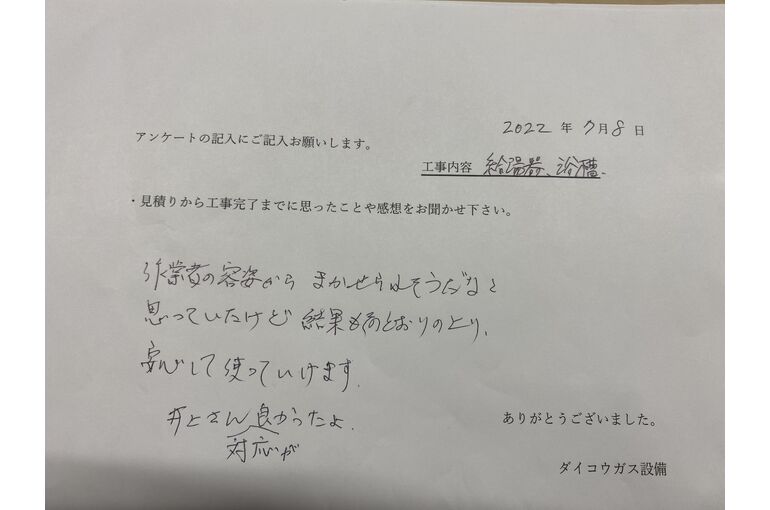 2022 年 7月 8 日
アンケートの記入にご記入お願いします。
工事内容 給湯器、浴槽
・見積りから工事完了までに思ったことや感想をお聞かせ下さい。
作業者の容姿から まかせられそうだなと
思っていたけど 結果も
安心して使っていけます.
井上さん 対応が 良かったよ.
ありがとうございました。
ダイコウガス設備